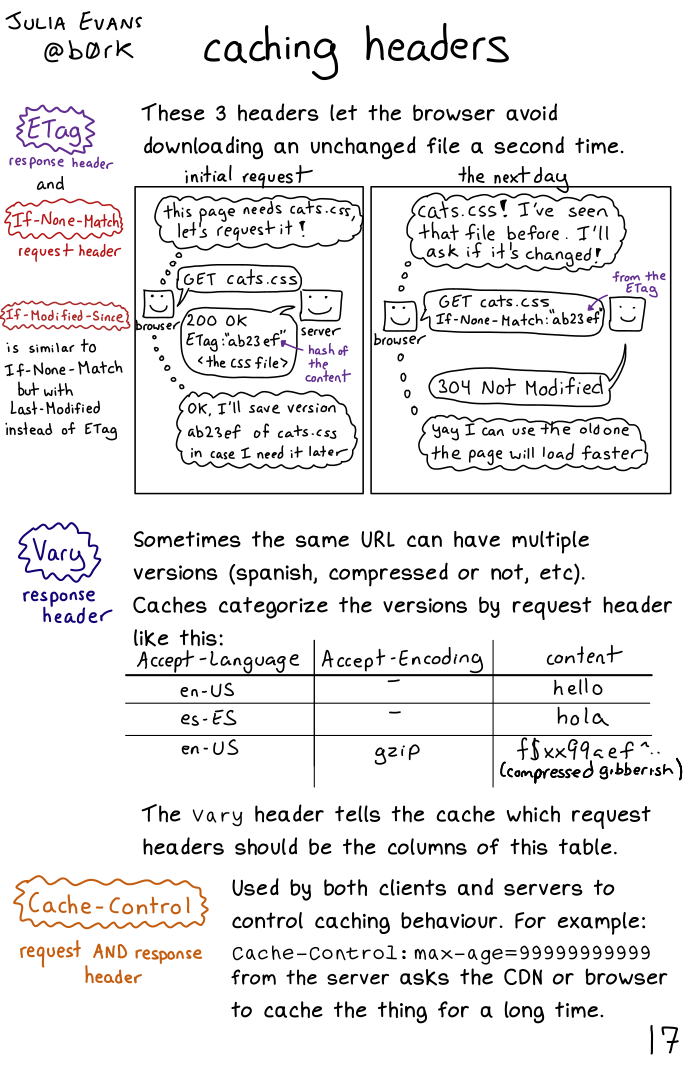 JULIA EVANS
@b0rk
caching headers
ETag
response header
and
If-None-Match
request header
If-Modified-Since
is similar to
If-None-Match
but with
Last-Modified
instead of ETag
These 3 headers let the browser avoid
downloading an unchanged file a second time.
initial request
this page needs cats.css,
let's request it!
GET cats.css
browser
server
200 OK
ETag:"ab23ef"
<the css file>
hash of
the
content
OK, I'll save version
ab23ef of cats.css
in case I need it later
the next day
cats.css! I've seen
that file before. I'll
ask if it's changed!
from the
ETag
GET cats.css
If-None-Match:"ab23ef"
browser
304 Not Modified
yay I can use the old one
the page will load faster
Vary
response
header
Sometimes the same URL can have multiple
versions (spanish, compressed or not, etc).
Caches categorize the versions by request header
like this:
Accept-Language Accept-Encoding content
en-US - hello
es-ES - hola
en-US gzip f$xx99aef^..
(compressed gibberish)
The Vary header tells the cache which request
headers should be the columns of this table.
Cache-Control
request AND response
header
Used by both clients and servers to
control caching behaviour. For example:
Cache-Control: max-age=99999999999
from the server asks the CDN or browser
to cache the thing for a long time.
17